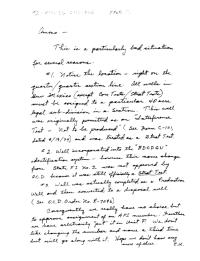 This is a particularly bad situation
for several reasons.
#1. Notice the location - right on the
quarter/quarter section line. All wells in
New Mexico (except Core Tests/Strat Tests)
must be assigned to a particular 40 acre
legal sub-division in a section. This well
was originally permitted as an "Interference
Test - Not to be produced" (See Form C-101,
dated and was treated as a Strat Test
#2. Well incorporated into XL "BDCDGU"
identification system - however this name change
from State FI No. 2 was not approved by
OCD because it was still officially a Strat Test
#3. Well was actually completed as a Production
Well and then converted to a disposal well
(See OCD Order No. R-
really have no choice but
to approve assignment of an API number. 
we have arbitrarily put it in Unit We don't
like changing the number and name a third time
but will go along with it. Hope we don't have any
more of these